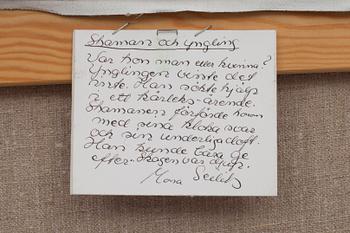 Shaman och yngling
Var hon man eller kvinna?
Ynglingen visste det
inte. Han sökte hjälp
i ett kärleks-ärende.
Shamanen förförde honom
med sina kloka svar
och sin underliga doft.
Han kunde bara ge
efter. Skogen var djup.
Mona